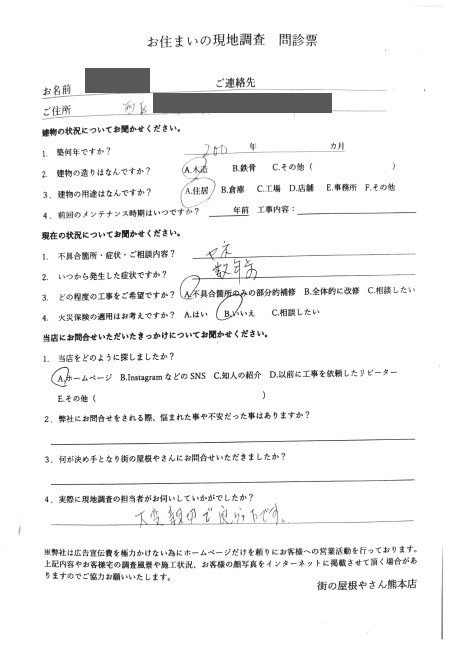 お住まいの現地調査　問診票
お名前　ご連絡先
ご住所
建物の状況についてお聞かせください。
1. 築何年ですか？　200 年　カ月
2. 建物の造りはなんですか？　A.木造　B.鉄骨　C.その他（　）
3. 建物の用途はなんですか？　A.住居　B.倉庫　C.工場　D.店舗　E.事務所　F.その他
4. 前回のメンテナンス時期はいつですか？　年前　工事内容：
現在の状況についてお聞かせください。
1. 不具合箇所・症状・ご相談内容？　ヤネ
2. いつから発生した症状ですか？　数年前
3. どの程度の工事をご希望ですか？　A.不具合箇所のみの部分的補修　B.全体的に改修　C.相談したい
4. 火災保険の適用はお考えですか？　A.はい　B.いいえ　C.相談したい
当店にお問合せいただいたきっかけについてお聞かせください。
1. 当店をどのように探しましたか？
A.ホームページ　B.InstagramなどのSNS　C.知人の紹介　D.以前に工事を依頼したリピーター
E.その他（　）
2. 弊社にお問合せをされる際、悩まれた事や不安だった事はありますか？
3. 何が決め手となり街の屋根やさんにお問合せいただきましたか？
4. 実際に現地調査の担当者がお伺いしていかがでしたか？
大変親切で良かったです。
※弊社は広告宣伝費を極力かけない為にホームページだけを頼りにお客様への営業活動を行っております。
上記内容やお客様宅の調査風景や施工状況、お客様の顔写真をインターネットに掲載させて頂く場合があ
りますのでご協力お願いいたします。
街の屋根やさん熊本店